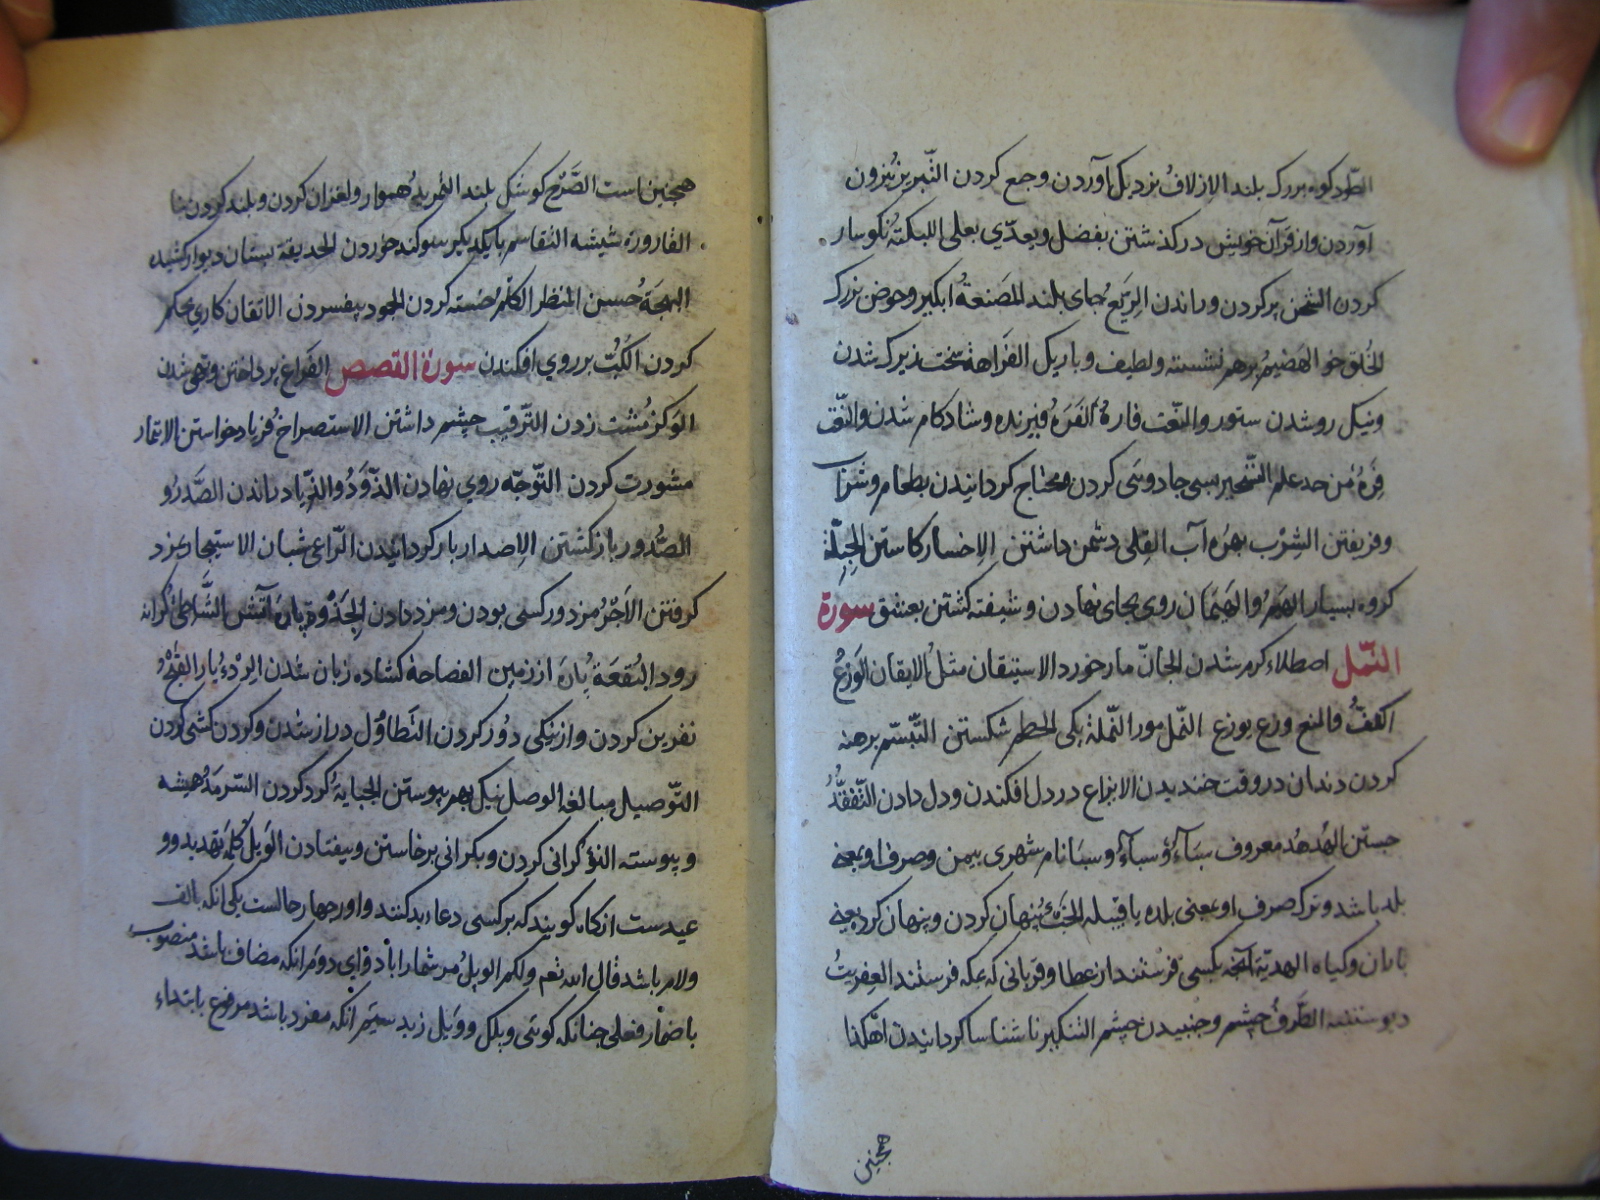 الطّود کوه بزرک بلند الاِزلافُ نزدیک آوردن وجمع کردن التّبریز بیرون
آوردن واز قرآن خویش درکذشتن بفضل ویعدّی بعلی الکبکبة نکوسار
کردن الشحن پر کردن وراندن الرّیع جای بلند المَصنعةُ ابکیر وحوض بزرک
الخُلق خو الهَضیمُ برهم نشسته ولطیف وباریک الفَراهة سخت زیرک شدن
ونیک رو شدن ستور والنّعت فارهٌ الفَرَهُ فیرنده وشادکام شدن والنّعت
فَرِهٌ من حد علم التّسحیر بسی جادوئی کردن ومحتاج کردانیدن بطعام وشراب
وفریفتن الشِرْب بهره آب القِلی دشمن داشتن الاِخسار کاستن الجِبِلّة
کروه بسیار الهَیْمُ والهَیَمان روی بجای نهادن وشیفته کشتن بعشق سورة
النّمل اصطلاء کرم شدن الجانّ مار خورد الاستیقان مثلُ الایقان الوَزعُ
الکفّ والمنع وزع یوزع النّمل مور النّملة یکی الحطم شکستن التّبسّم برهنه
کردن دندان در وقت خندیدن الایزاع در دل افکندن ودل دادن التّفقّدُ
جستن الهُدهُد معروف سَبَاءٌ وسباءُ وسبا نام شهری بیمن وصرف او بمعنی
بلد باشد وترک صرف او بمعنی بلده یا قبیله الخَبْءُ پنهان کردن وپنهان کرد یعنی
باران وکیاه الهدیّة آنچه بکسی فرستند از عطا وقربانی که بمکه فرستند العِفریتُ
دیو ستنبه الطَّرفُ چشم وجنبیدن چشم التنکیر ناشناسا کردانیدن اهکذا
همچنین
همچنین است الصَّرْح کوشک بلند التّمرید هموار ولغزان کردن وبلند کردن بنا
القارورة شیشه التقاسم با یکدیکر سوکند خوردن الحدیقة بستان دیوار کشیده
البهجَةُ حسن المنظر الکَلْمُ خسته کردن الجمود بیفسردن الاتقان کاری محکم
کردن الکَبّ بر روی افکندن سورة القصص الفَراغ پرداختن وتهی شدن
الوَکز مُشت زدن التّرقّب چشم داشتن الاستصراخ فریاد خواستن الائتمار
مشورت کردن التّوجّه روی نهادن الذَّودُ والذّیاد راندن الصَّدَرُ و
الصُّدور بازکشتن الاِصدار بازکردانیدن الرّاعی شبان الاستیجار بمزد
کرفتن الاَجْرُ مزدور کسی بودن ومزد دادن الجَذْوة پارهٔ آتش الشَّاطِئُ کرانه
رود البُقعَة پارهٔ از زمین الفصاحة کشاده زبان شدن الرِدْءُ یار القَبْحُ
نفرین کردن واز نیکی دور کردن التَطاوُل دراز شدن وکردن کشی کردن
التّوصیل مبالغه الوصل نیک بهم پیوستن الجبایةُ کرد کردن السّرمَدُ همیشه
وپیوسته النَوْءُ کرانی کردن وبکرانی برخاستن وبیفتادن الوَیلُ کلمه تهدید وو
عیدست آنکاه کویند که بر کسی دعاء بد کنند واو را چهار حالست یکی آنکه بالف
ولام باشد قال الله تعم ولکم الویلُ مر شما را باد وای دوم آنکه مضاف باشد منصوب
باضمار فعلی چنانکه کوئی ویلک وویل زید سیّم آنکه مفرد باشد مرفوع بابتداء